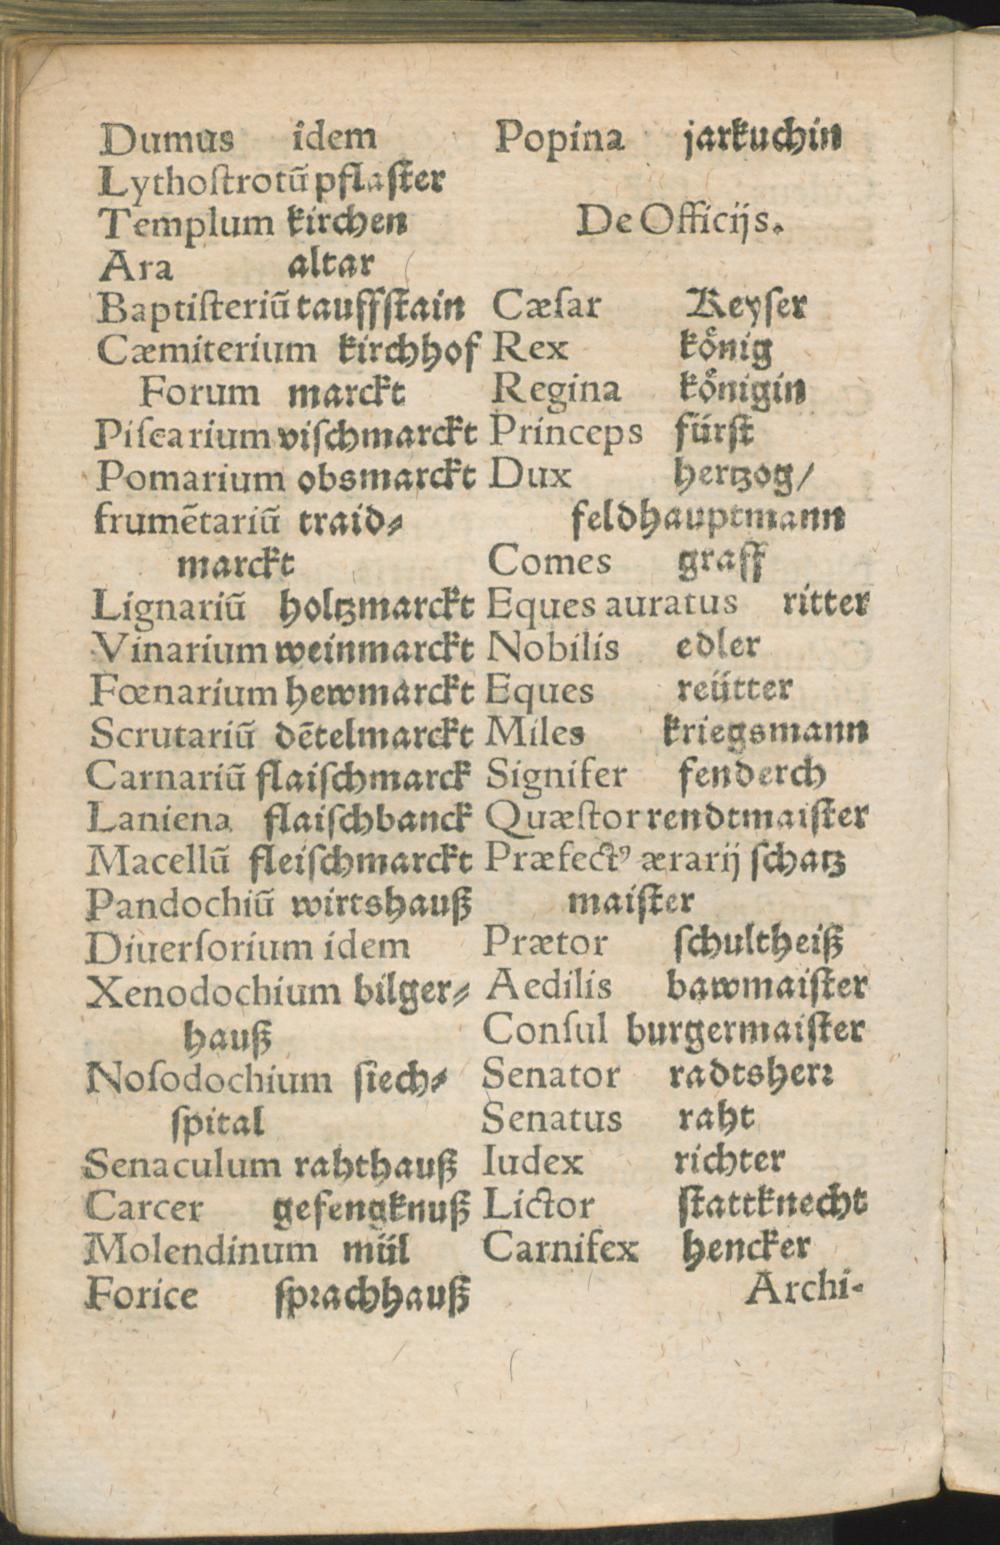 Dumus idem
Lythoſtrotū pflaſter
Templum kirchen
Ara altar
Baptiſteriū tauffſtain
Cæmiterium kirchhof
Forum marckt
Piſcarium viſchmarckt
Pomarium obsmarckt
frumētariū traid⸗
marckt
Lignariū holtzmarckt
Vinarium weinmarckt
Fœnarium hewmarckt
Scrutariū dētelmarckt
Carnariū flaiſchmarck
Laniena flaiſchbanck
Macellū fleiſchmarckt
Pandochiū wirtshauß
Diuerſorium idem
Xenodochium bilger⸗
hauß
Noſodochium ſiech⸗
ſpital
Senaculum rahthauß
Carcer gefengknuß
Molendinum mül
Forice ſpꝛachhauß
Popina jarkuchin
De Officijs.
Cæſar Keyſer
Rex koͤnig
Regina koͤnigin
Princeps fürſt
Dux hertzog/
feldhauptmann
Comes graff
Eques auratus ritter
Nobilis edler
Eques reütter
Miles kriegsmann
Signifer fenderch
Quæſtor rendtmaiſter
Præfectꝰ ærarij ſchatz
maiſter
Prætor ſchultheiß
Aedilis bawmaiſter
Conſul burgermaiſter
Senator radtsherꝛ
Senatus raht
Iudex richter
Lictor ſtattknecht
Carnifex hencker
Archi-